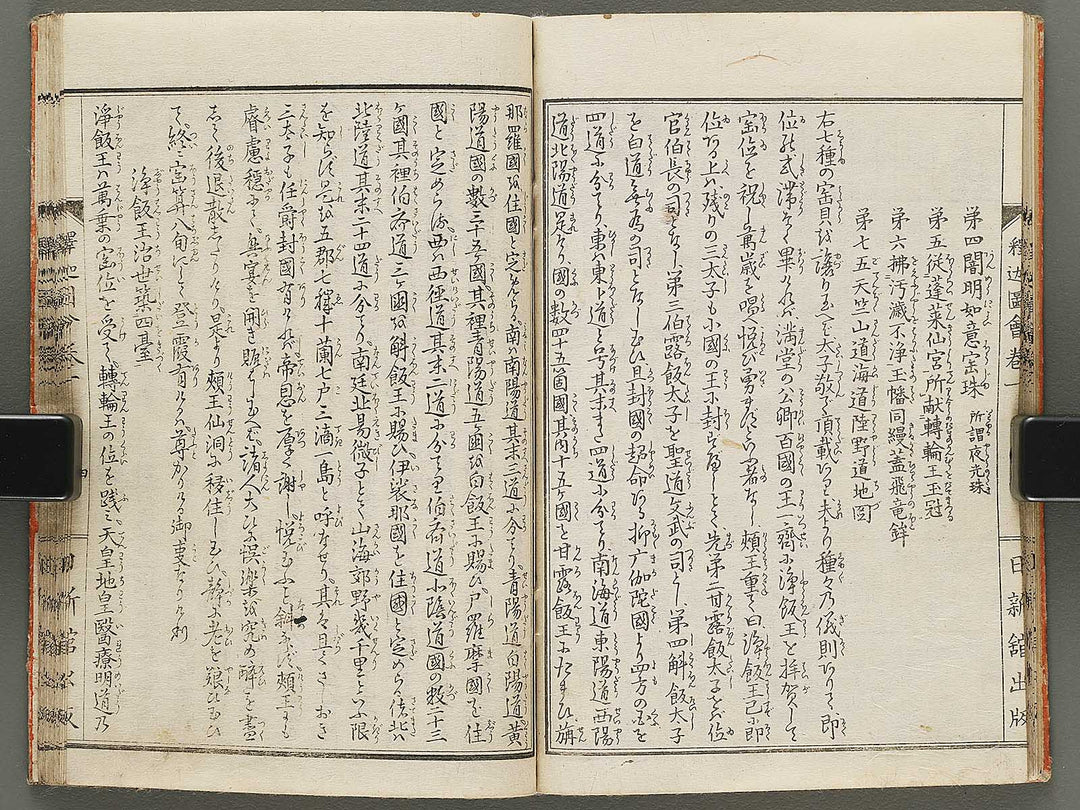 第四闇明如意宝珠 所謂夜光珠
第五従蓬莱仙宮所献轉輪王玉冠
第六拂汚濊不浄玉幡同縵蓋飛竜鉾
第七五天竺山道海道陸野道地図
右七種の宝貝を譲り玉へば太子敬て頂載ありまた種々の儀則ありて即
位の式滞なく畢りければ満堂の公卿百國の王一齊に浄飯王と拝賀して
宝位を祝し萬歳を唱へ悦び勇まざる者なし頗王重て曰浄飯王已に即
位ある上は残りの三太子も小國の王に封ずべしとて先第二甘露飯太子を位
官伯長の司となし第三伯露飯太子を聖道文武の司とし第四斛飯太子
を白道無為の司となし玉ひ且封國の詔命あり抑广伽陀國より四方の國を
四道に分てり東は東卜道と号其末また四道に分てり南海道東陽道西陽
道北陽道是なり國の数四十五箇國其内十五ヶ國を甘露飯王にたまひ旃
那羅國を住國と定めたる南は南陽道其末三道に分てり青陽道白陽道黄
陽道國の数三十五ヶ國其裡青陽道五ヶ國を白飯王に賜ひ尸羅摩國を住
國と定めらる西は西徑道其末二道に分てり伯府道小陰道國の数二十三
ヶ國其裡伯府道三ヶ國を斛飯王に賜ひ伊裟那國を住國と定めらる北は
北陸道其末二十四道に分てり南廷北易微子とて山海郊野幾千里といふ限
を知らず是を五郡七擇十蘭七戸三滴一島と呼なせり其々具さにおさ
三太子も任爵封國有ければ帝恩を厚く謝し悦玉ふこと斜ならず頗王も
睿慮穏にて具宴を開き賑はし玉へば諸人大ひに悞楽を究め酔を盡
して後退散したりけり是より頗王仙洞に移住し玉ひ静に老を養ひ玉ひ
て終に宝算八旬にして登霞有けるは尊かりける御事なりけり
浄飯王治世築四臺
淨飯王は萬乗の宝位を受て轉輪王の位を践み天皇地皇醫療明道乃
釋迦圖會巻一
日新舘出版